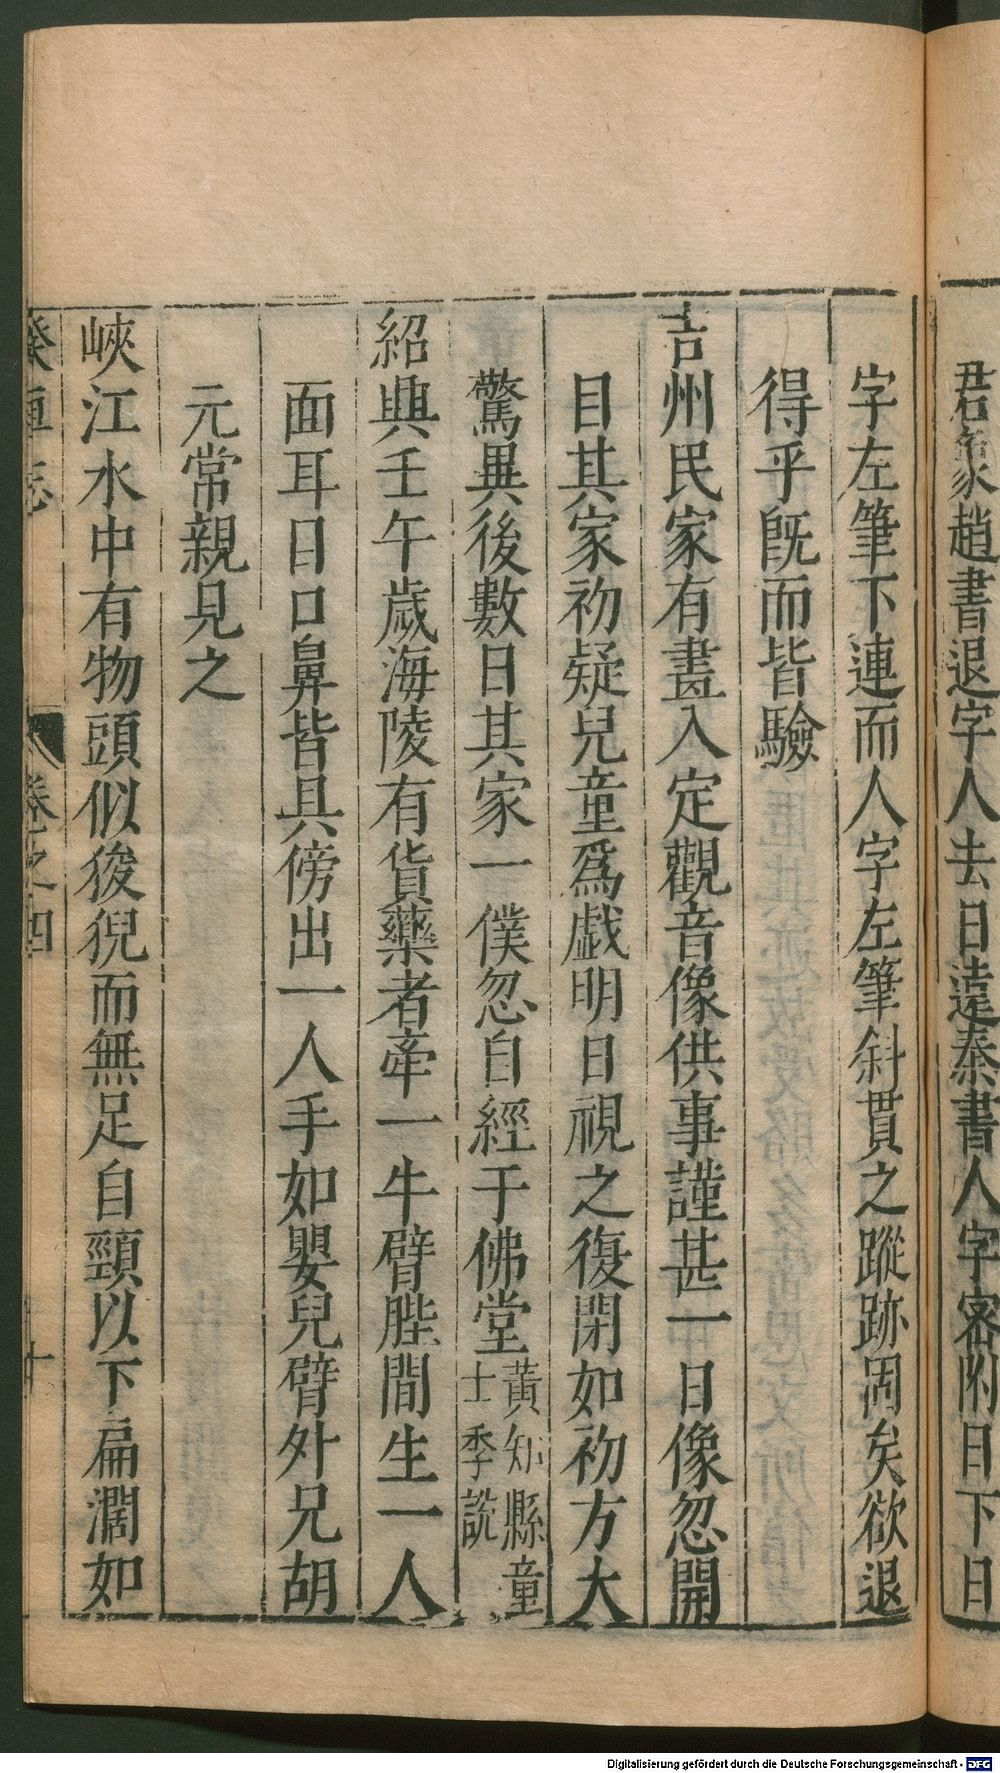 君家趙書退字人去日遠秦書人字密附日下日
字左筆下連而人字左筆斜貫之蹤跡固矣欲退
得乎旣而皆驗
吉州民家有畫入定觀音像供事謹甚一日像忽開
目其家初疑兒童爲戲明日視之復閉如初方大
驚異後數日其家一僕忽自經于佛堂黃知縣童
士季說
紹興壬午歲海陵有貨藥者牽一牛臂䏶間生一人
面耳目口鼻皆具傍出一人手如嬰兒臂外兄胡
元常親見之
峽江水中有物頭似狻猊而無足自頸以下扁濶如
睽車志
卷之四
十
Digitalisierung gefördert durch die Deutsche Forschungsgemeinschaft - DFG